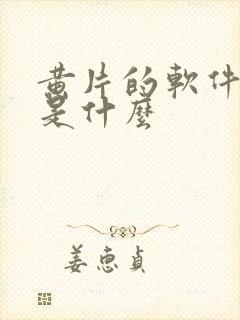 黄片的軟件
是什麼
姜惠貞